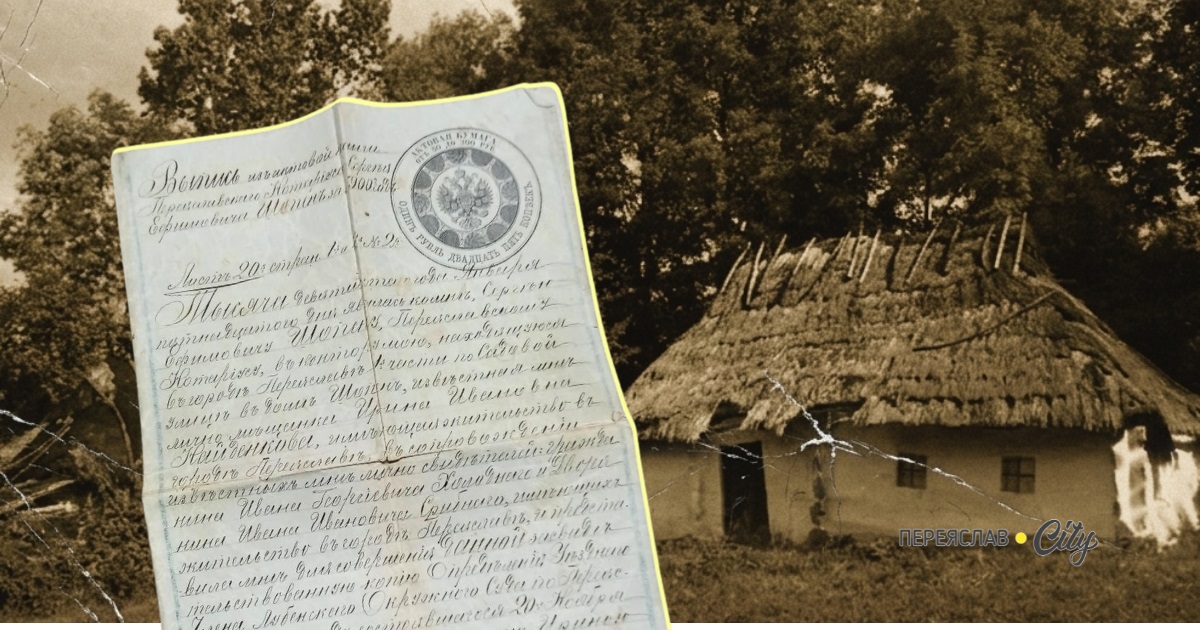 Выпись изъ актовой книги
Переяславскаго Нотаріуса Сергѣя
Ефимовича Шопина за 1900 г.
АКТОВАЯ БУМАГА
ОТЪ 50 ДО 300 РУБ
ОДИНЪ РУБЛЬ ДВАДЦАТЬ ПЯТЬ КОПѢЕКЪ
Листъ 20й стран 1я № 2й
Тысяча девятисотаго года Января
пятнадцатого дня явилась ко мнѣ, Сергѣю
Ефимовичу Переяславскому
Нотаріусу, въ контору мою, находящуюся
въ городѣ Переяславѣ, части по Садовой
улицѣ въ домѣ извѣстная мнѣ
лично мѣщанка Ирина Ивановна
Найденкова, имѣющая жительство въ
городѣ Переяславѣ, въ сопровожденіи
извѣстныхъ мнѣ лично свидѣтелей: гражда
нина Ивана Георгіевича Холоднаго и Двора
нина Ивана Ивановича Срибнаго, имѣющихъ
жительство въ городѣ Переяславѣ, и предста
вила мнѣ для совершенія Данной засвидѣ
тельствованную копію Опредѣленія Уѣзднаго
Члена Лубенскаго Окружнаго Суда по Переяс-
состоявшагося 20го Ноября
Ириною
ПЕРЕЯСЛАВ City